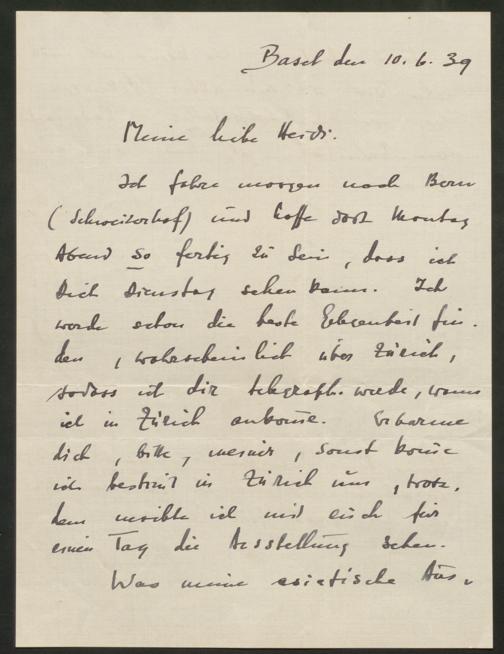 Basel den 10. 6. 39
Meine liebe Heidi.
Ich fahre morgen nach Bern
(Schweizerhof) und hoffe dort Montag
Abend so fertig zu sein, dass ich
Dich Dienstag sehen kann. Ich
werde schon die beste Gelegenheit fin-
den, wahrscheinlich über Zürich,
sodass ich dir telegraph. werde, wann
ich in Zürich ankom̄e. Erbarme
dich, bitte, meiner, sonst kom̄e
ich bestim̄t in Zürich um, trotz-
dem möchte ich mit euch für
einen Tag die Ausstellung sehen.
Was meine asiatische Aus-